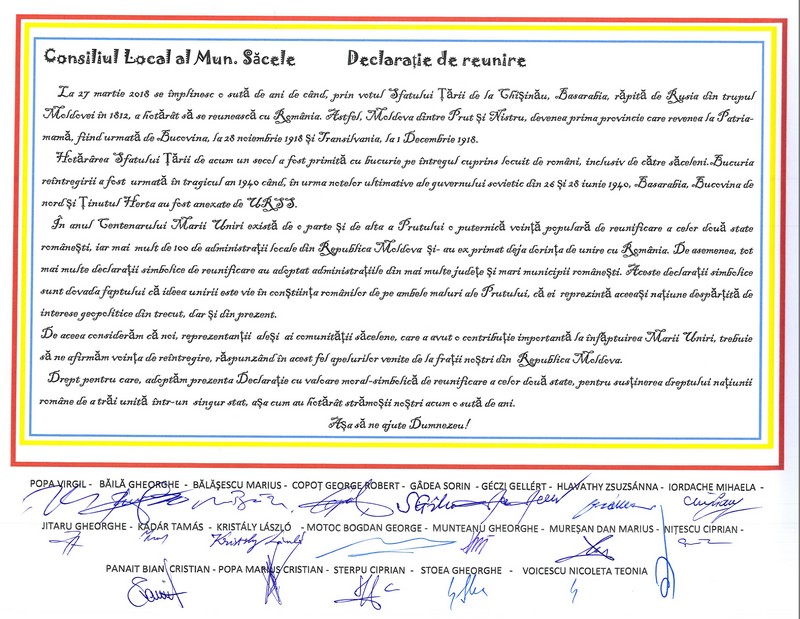 Consiliul Local al Mun. Săcele Declarație de reunire
La 27 martie 2018 se împlinesc o sută de ani de când, prin votul Sfatului Țării de la Chișinău, Basarabia, răpită de Rusia din trupul
Moldovei în 1812, a hotărât să se reunească cu România. Astfel, Moldova dintre Prut și Nistru, devenea prima provincie care revenea la Patria-
mamă, fiind urmată de Bucovina, la 28 noiembrie 1918 și Transilvania, la 1 Decembrie 1918.
Hotărârea Sfatului Țării de acum un secol a fost primită cu bucurie pe întregul cuprins locuit de români, inclusiv de către săceleni.Bucuria
reîntregirii a fost urmată în tragicul an 1940 când, în urma notelor ultimative ale guvernului sovietic din 26 și 28 iunie 1940, Basarabia, Bucovina de
nord și Ținutul Herta au fost anexate de URSS.
În anul Centenarului Marii Uniri există de o parte și de alta a Prutului o puternică voință populară de reunificare a celor două state
românești, iar mai mult de 100 de administrații locale din Republica Moldova și- au ex primat deja dorința de unire cu România. De asemenea, tot
mai multe declarații simbolice de reunificare au adoptat administrațiile din mai multe județe și mari municipii românești. Aceste declarații simbolice
sunt dovada faptului că ideea unirii este vie în conștiința românilor de pe ambele maluri ale Prutului, că ei reprezintă aceeași națiune despărțită de
interese geopolitice din trecut, dar și din prezent.
De aceea considerăm că noi, reprezentanții aleși ai comunității săcelene, care a avut o contribuție importantă la înfăptuirea Marii Uniri, trebuie
să ne afirmăm voința de reîntregire, răspunzând în acest fel apelurilor venite de la frații noștri din Republica Moldova.
Drept pentru care, adoptăm prezenta Declarație cu valoare moral-simbolică de reunificare a celor două state, pentru susținerea dreptului națiunii
române de a trăi unită într-un singur stat, așa cum au hotărât strămoșii noștri acum o sută de ani.
Așa să ne ajute Dumnezeu!
POPA VIRGIL - BĂILĂ GHEORGHE - BĂLĂȘESCU MARIUS - COPOȚ GEORGE ROBERT - GÂDEA SORIN - GÉCZI GELLÉRT - HLAVATHY ZSUZSÁNNA - IORDACHE MIHAELA -
JITARU GHEORGHE - KÁDÁR TAMÁS - KRISTÁLY LÁSZLÓ - MOTOC BOGDAN GEORGE - MUNTEANU GHEORGHE - MUREȘAN DAN MARIUS - NIȚESCU CIPRIAN -
Kristály László
PANAIT BIAN CRISTIAN - POPA MARIUS CRISTIAN - STERPU CIPRIAN - STOEA GHEORGHE - VOICESCU NICOLETA TEONIA